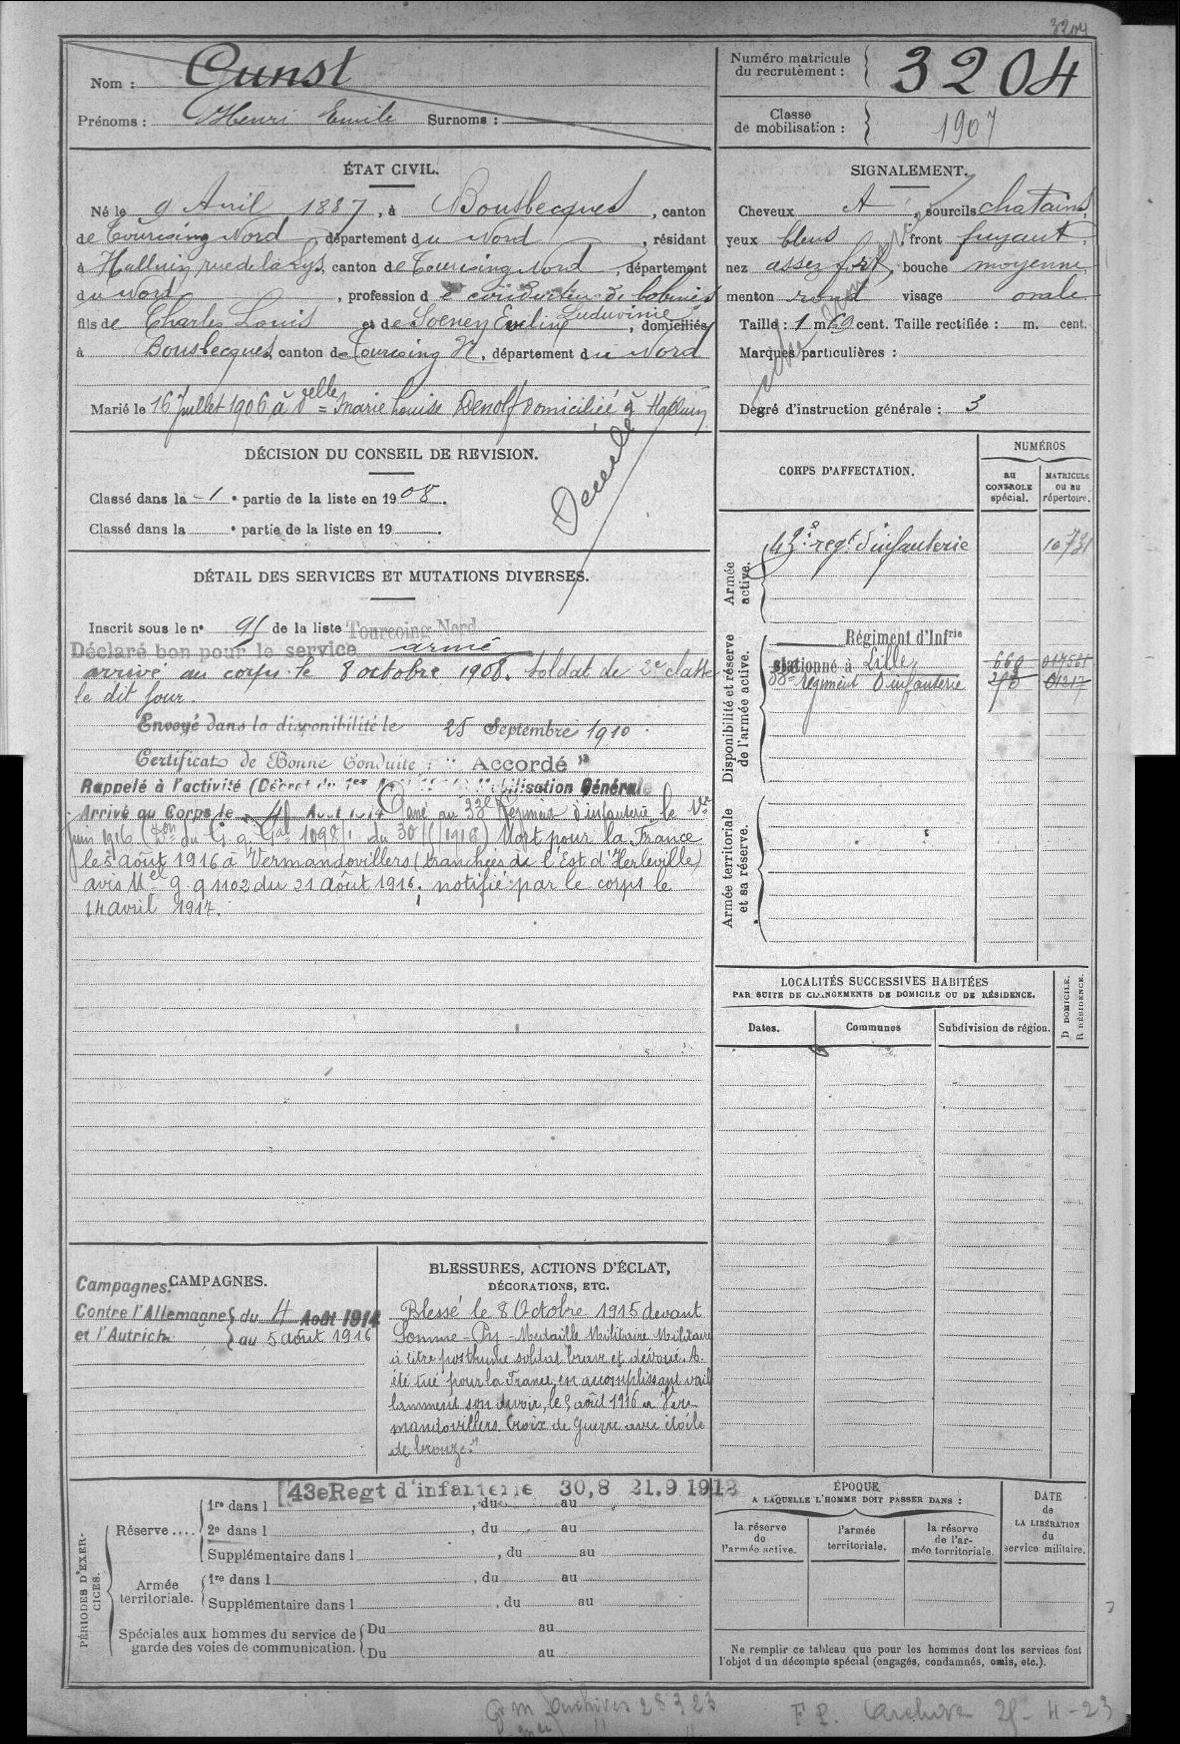 3204
Nom : Cunst
Prénoms : Henri Emile Surnoms :
Numéro matricule
du recrutement : 3204
Classe
de mobilisation : 1907
ÉTAT CIVIL.
Né le 9 Avril 1887, à Bousbecques, canton
de Tourcoing Nord, département du Nord, résidant
à Halluin, rue de la Lys, canton de Tourcoing Nord, département
du Nord, profession de conducteur de bobines
fils de Charles Louis et de Evelin Luduvinie, domiciliés
à Bousbecques, canton de Tourcoing N, département du Nord
Marié le 16 Juillet 1906 à Delle Marie Louise Denolf domiciliée à Halluin
SIGNALEMENT.
Cheveux, sourcils chatains,
yeux bleus, front fuyant,
nez assez fort, bouche moyenne
menton rond visage ovale
Taille : 1 m 69 cent. Taille rectifiée : m. cent.
Marques particulières :
Degré d'instruction générale : 3
DÉCISION DU CONSEIL DE REVISION.
Classé dans la 1 e partie de la liste en 1908.
Classé dans la e partie de la liste en 19 .
Décédé
DÉTAIL DES SERVICES ET MUTATIONS DIVERSES.
Inscrit sous le n° 95 de la liste Tourcoing-Nord
Déclaré bon pour le service armé
arrivé au corps le 8 octobre 1908. Soldat de 2e classe
le dit jour.
Envoyé dans la disponibilité le 25 Septembre 1910.
Certificat de Bonne Conduite : " Accordé "
Rappelé à l'activité (Décret du 1er Mobilisation Générale
Arrivé au Corps le 4 Aout 1914 Passé au 33e Régiment d'infanterie le 1er
juin 1916 (Don du G.q.Gal 1098/1 du 30/5/1916) Mort pour la France
le 5 août 1916 à Vermandovillers (tranchées de l'Est d'Herleville)
avis Mel 9 9 1102 du 21 août 1916. notifié par le corps le
14 avril 1917.
CORPS D'AFFECTATION.
NUMÉROS
au
CONTROLE
spécial.
MATRICULE
ou au
répertoire.
Armée
active.
43e regt d'infanterie 10731
Disponibilité et réserve
de l'armée active.
Régiment d'Infrie
stationné à Lille 660
Régiment d'infanterie
Armée territoriale
et sa réserve.
LOCALITÉS SUCCESSIVES HABITÉES
PAR SUITE DE CHANGEMENTS DE DOMICILE OU DE RÉSIDENCE.
Dates. Communes Subdivision de région.
D DOMICILE.
R RÉSIDENCE.
CAMPAGNES.
Campagnes:
Contre l'Allemagne } du 4 Août 1914
et l'Autriche } au 5 août 1916
BLESSURES, ACTIONS D'ÉCLAT,
DÉCORATIONS, ETC.
Blessé le 8 Octobre 1915 devant
Somme-Py - Medaille Militaire Militaire
à titre posthume soldat brave et dévoué. A
été tué pour la France, en accomplissant vail
lamment son devoir, le 5 août 1916 à Ver-
mandovillers. Croix de Guerre avec étoile
de bronze."
PÉRIODES D'EXER-
CICES.
[43e Regt d'infanterie 30.8 21.9 1912
Réserve .... 1re dans l , du au
2e dans l , du au
Supplémentaire dans l , du au
Armée
territoriale. 1re dans l , du au
Supplémentaire dans l , du au
Spéciales aux hommes du service de
garde des voies de communication.
Du au
Du au
ÉPOQUE
A LAQUELLE L'HOMME DOIT PASSER DANS :
la réserve
de
l'armée active.
l'armée
territoriale.
la réserve
de l'ar-
mée territoriale.
DATE
de
LA LIBÉRATION
du
service militaire.
Ne remplir ce tableau que pour les hommes dont les services font
l'objet d'un décompte spécial (engagés, condamnés, omis, etc.).
archives 28323
archive 25-4-23